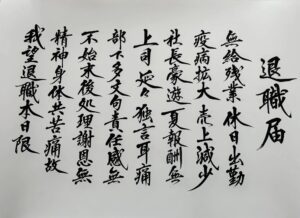 退職届
無給残業休日出勤
疫病拡大売上減少
社長豪遊夏報酬無
上司延々独言耳痛
部下多文句責任感無
不始末後処理謝恩無
精神身体共苦痛故
我望退職本日限